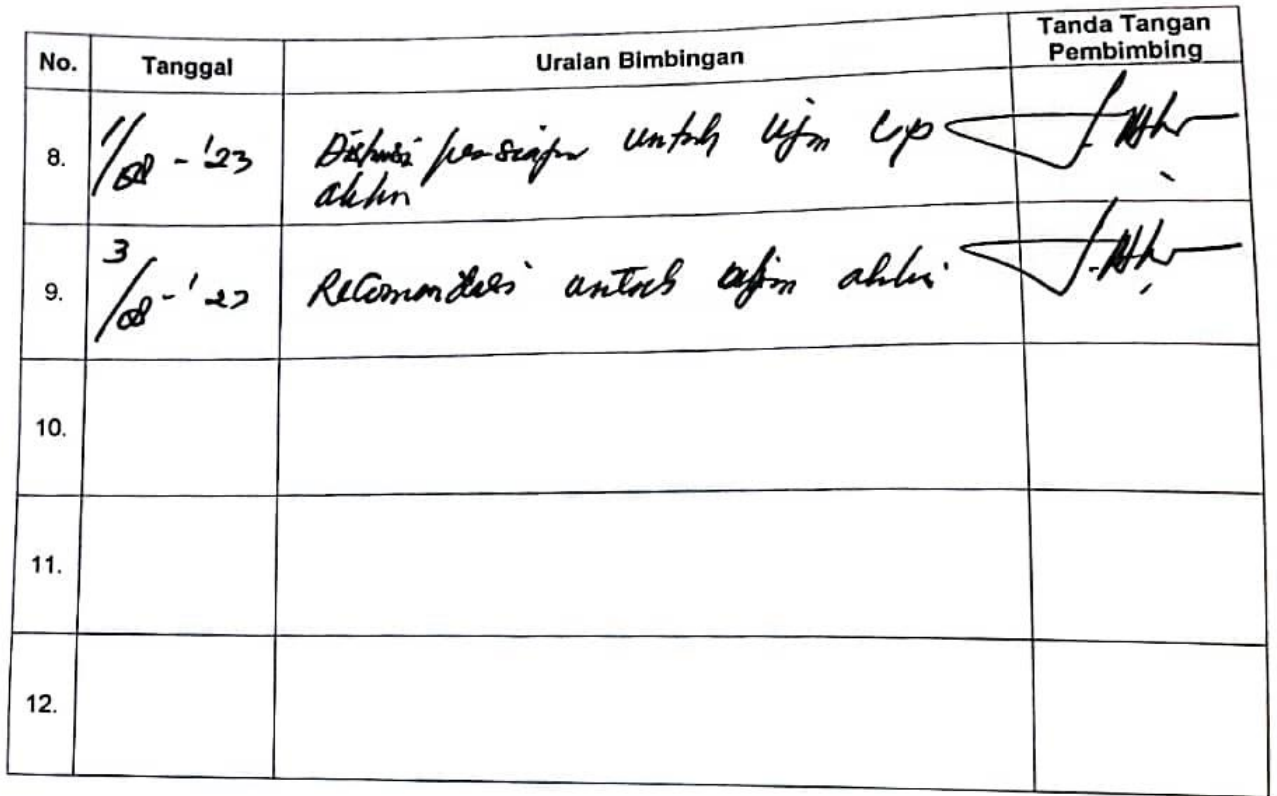 No. Tanggal Uraian Bimbingan Tanda Tangan Pembimbing
8. 1/08 - '23 Diskusi persiapan untuk ujian
akhir
9. 3/08 - '23 Rekomendasi untuk ujian akhir
10.
11.
12.